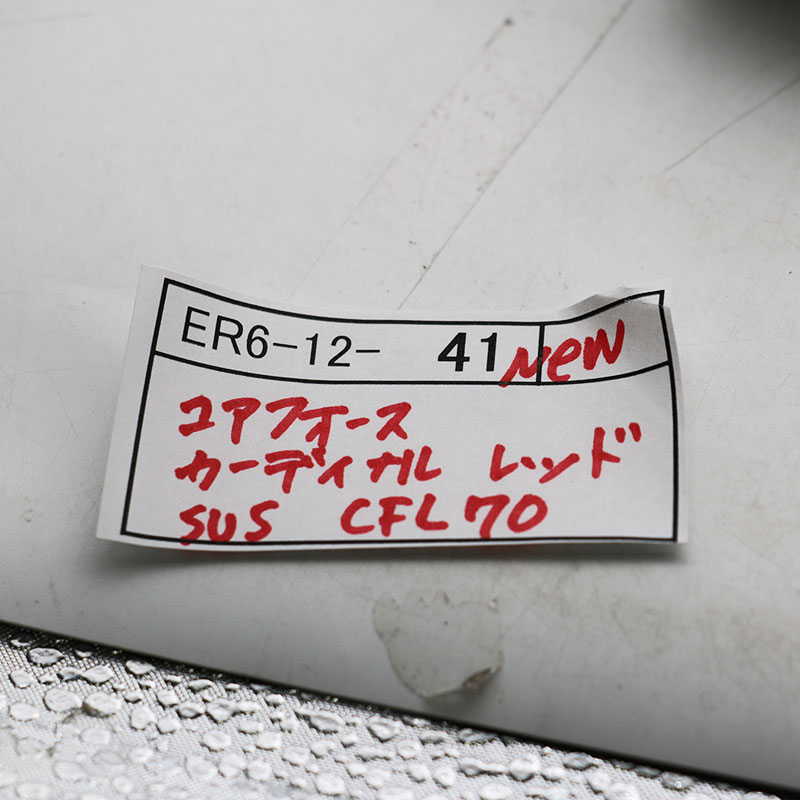 ER6-12- 41 New
コアフォース
カーディナル レッド
SUS CFL70